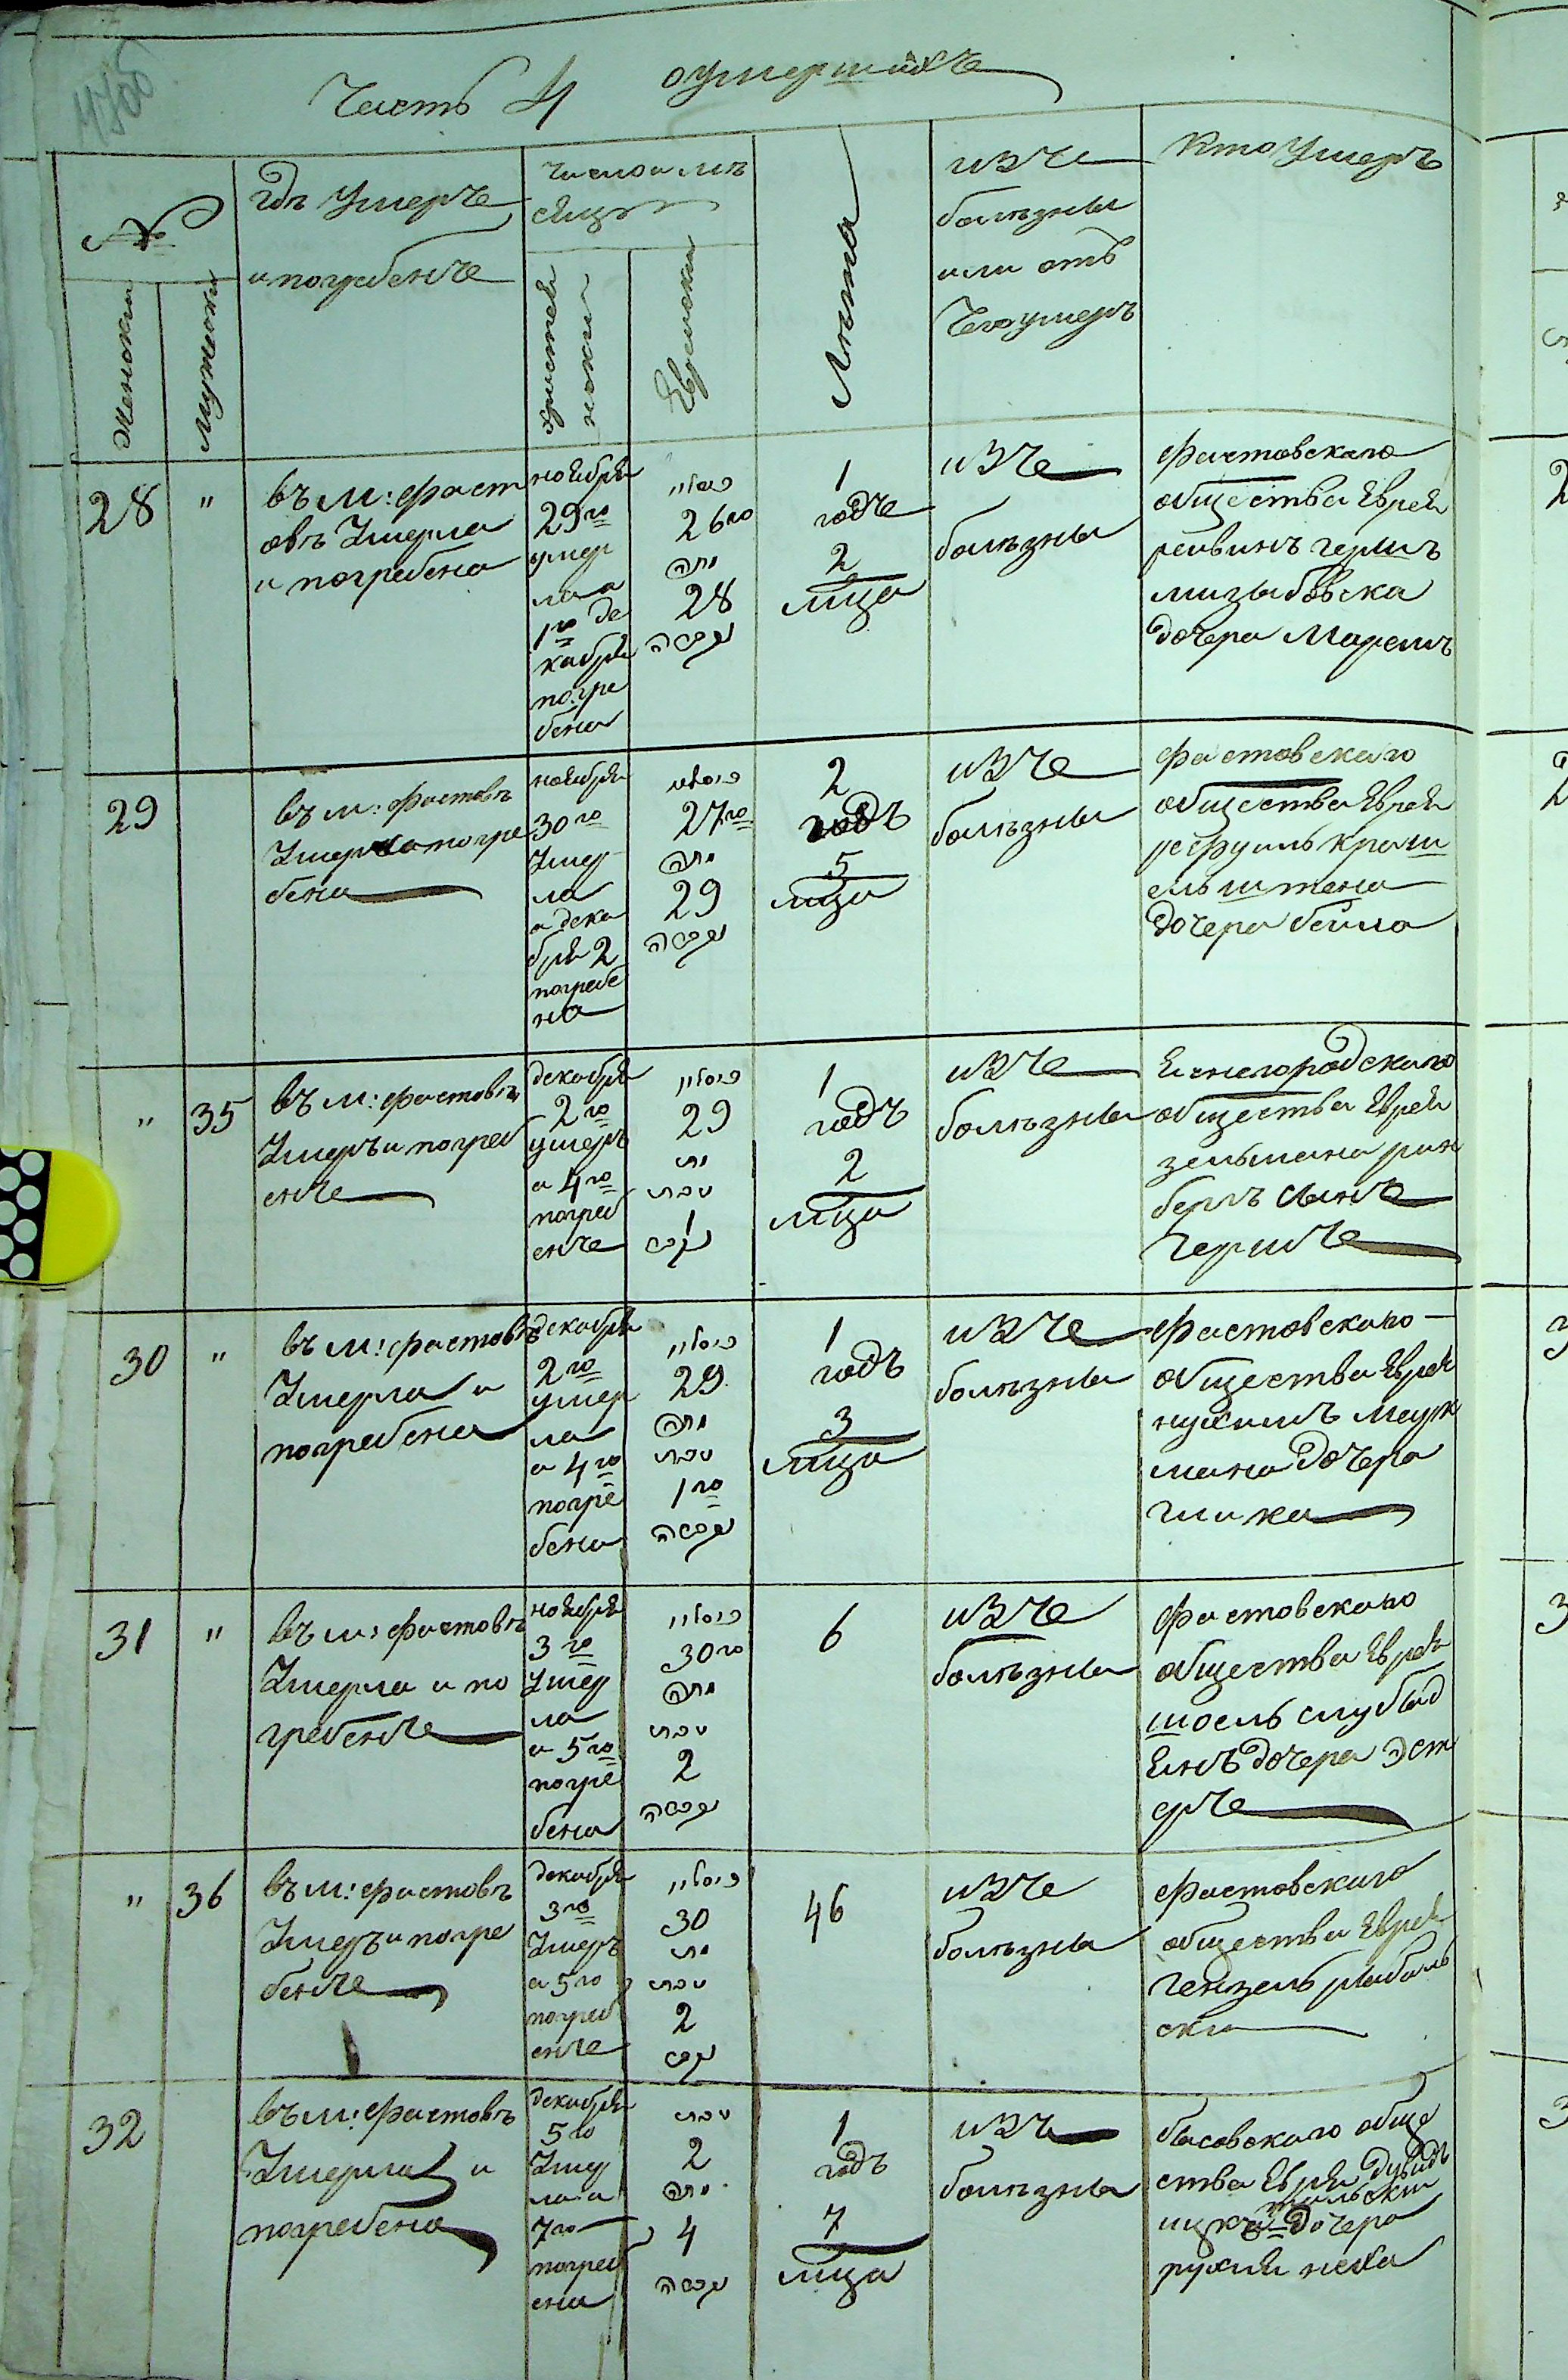 Часть 4 о умершихъ
№
Женски
Мужески
гдѣ Умеръ
и погребенъ
число и мѣ
сяцъ
христия
нский
Еврейский
Лѣта
изъ
болѣзны
или отъ
чего умеръ
кто Умеръ
28 "
въ м: фаст
овѣ Умерла
и погребена
ноября
29го
умер
ла а
1го де
кабря
погре
бена
כסליו
26го
מתה
28
נקברה
1
годъ
2
мца
изъ
болѣзны
фастовского
общества Еврея
рейвинъ гершъ
дочера
29
въ м: фастовѣ
Умерла погре
бена
ноября
30го
Умер
ла
а дека
бря 2
погребе
на
כסליו
27го
מתה
29
נקברה
2
годъ
5
мца
изъ
болѣзны
фастовского
общества Еврея
ельштена
дочера бейла
" 35
въ м: фастовѣ
Умеръ и погреб
енъ
декабря
2го
умеръ
а 4го
погреб
енъ
כסליו
29
מת
טבת
1
נקבר
1
годъ
2
мца
изъ
болѣзны
общества Еврея
зельмана рин
бергъ сынъ
гершъ
30 "
въ м: фастовѣ
Умерла и
погребена
декабря
2го
умер
ла
а 4го
погре
бена
כסליו
29
מתה
טבת
1го
נקברה
1
годъ
3
мца
изъ
болѣзны
фастовского
общества Еврея
нухимъ
мана дочера
31 "
въ м: фастовѣ
Умерла и по
гребенъ
ноября
3го
Умер
ла
а 5го
погре
бена
כסליו
30го
מתה
טבת
2
נקברה
6
изъ
болѣзны
фастовского
общества Еврея
шоель слубод
янъ дочера Эст
еръ
" 36
въ м: фастовѣ
Умеръ и погре
бенъ
декабря
3го
Умеръ
а 5го
погреб
енъ
כסליו
30
מת
טבת
2
נקבר
46
изъ
болѣзны
фастовского
общества Еврея
гензель рыбаль
ски
32
въ м: фастовѣ
Умерла и
погребена
декабря
5го
Умер
ла а
7го
погреб
ена
טבת
2
מתה
4
נקברה
1
годъ
7
мца
изъ
болѣзны
общe
ства Еврея дувидъ
дочера
рухля неха